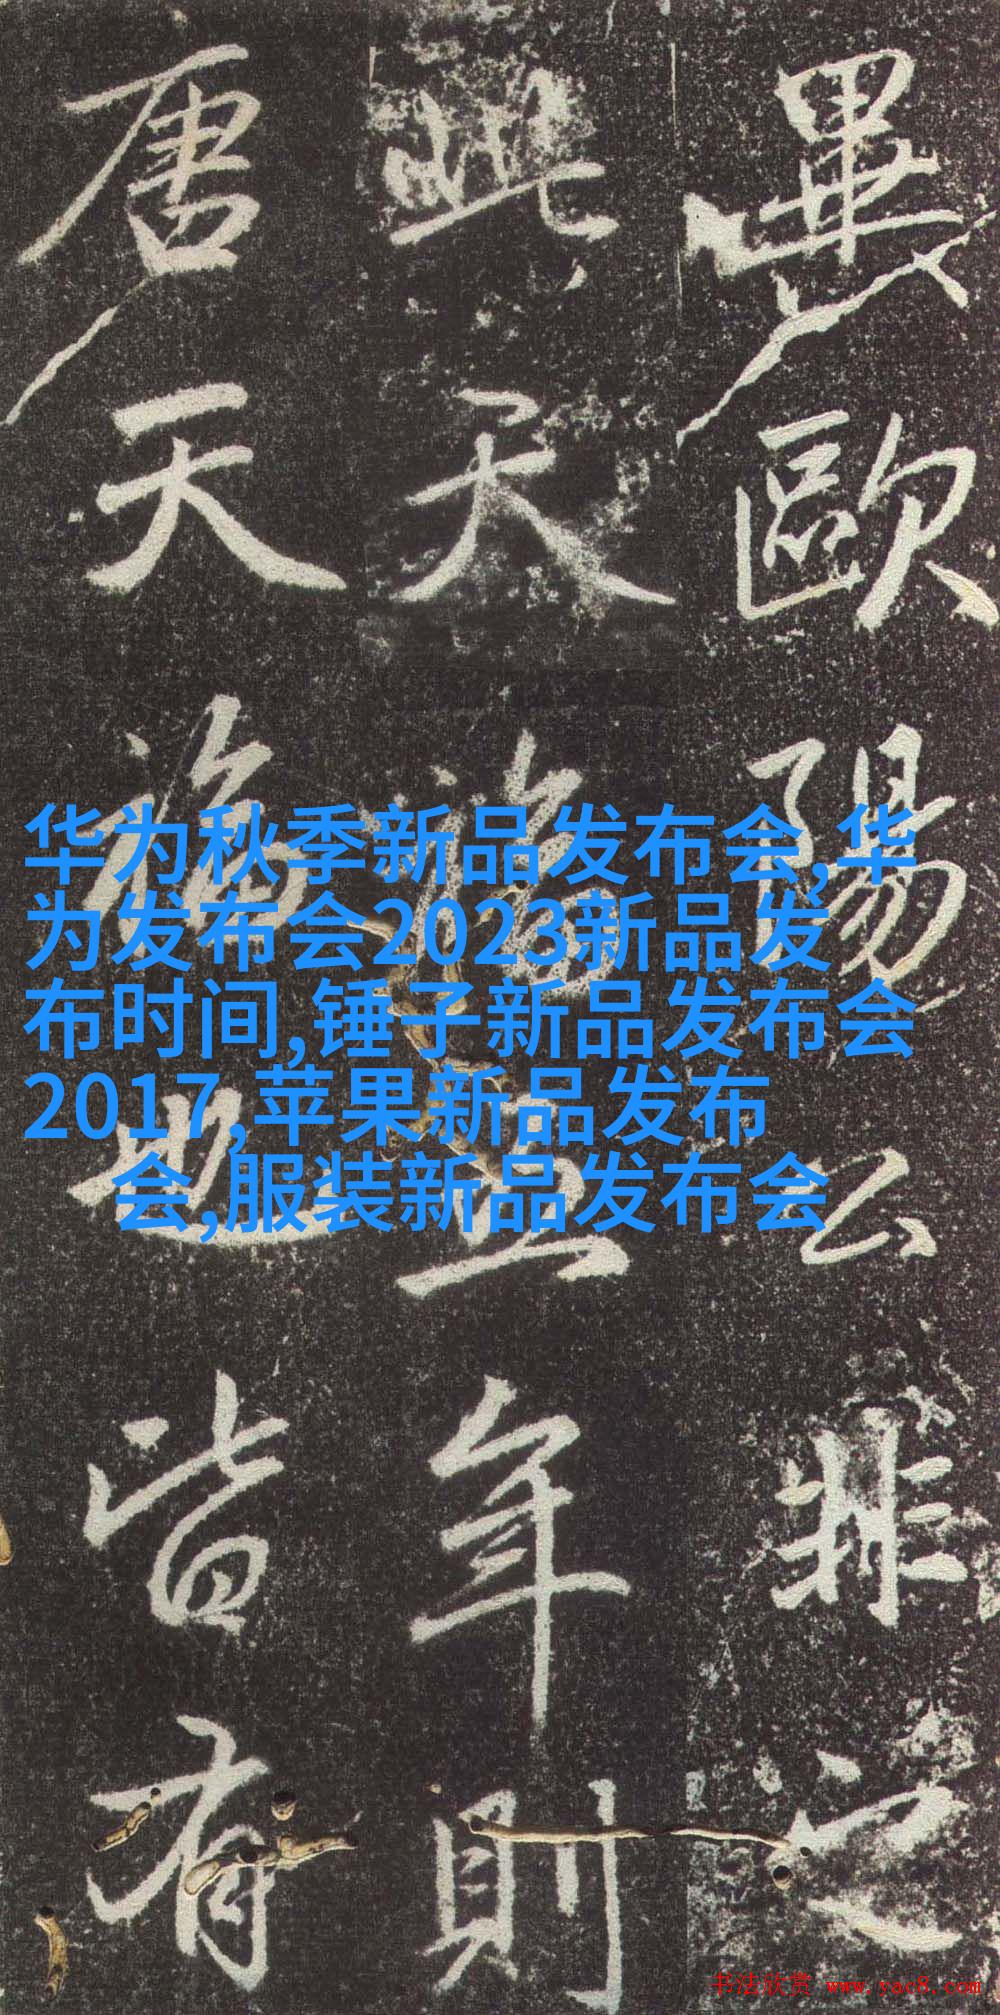 歐陽公非之
此天年則
唐天皆有
华为秋季新品发布会,华
为发布会2023新品发
布时间,锤子新品发布会
2017,苹果新品发布
会,服装新品发布会
书法欣赏 www.yac8.com